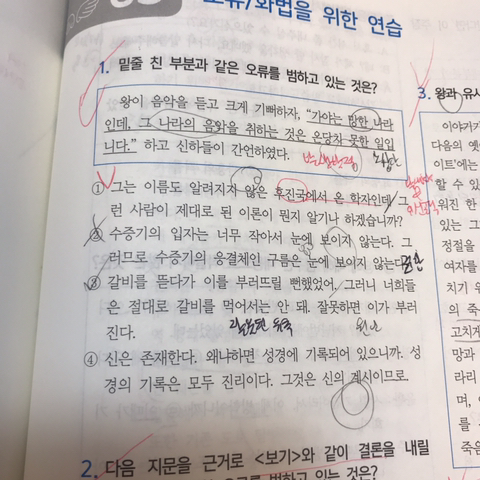 오류/화법을 위한 연습
1. 밑줄 친 부분과 같은 오류를 범하고 있는 것은?
왕이 음악을 듣고 크게 기뻐하자, “가야는 망한 나라
인데, 그 나라의 음악을 취하는 것은 온당치 못한 일입
니다.” 하고 신하들이 간언하였다.
① 그는 이름도 알려지자 않은 후진국에서 온 학자인데 그
런 사람이 제대로 된 이론이 뭔지 알기나 하겠습니까?
② 수증기의 입자는 너무 작아서 눈에 보이지 않는다. 그
러므로 수증기의 응결체인 구름은 눈에 보이지 않는다.
③ 갈비를 뜯다가 이를 부러뜨릴 뻔했었어. 그러니 너희들
은 절대로 갈비를 먹어서는 안 돼. 잘못하면 이가 부러
진다.
④ 신은 존재한다. 왜냐하면 성경에 기록되어 있으니까. 성
경의 기록은 모두 진리이다. 그것은 신의 계시이므로.
2. 다음 지문을 근거로 <보기>와 같이 결론을 내릴
오류를 범하고 있는 것은?
3. 왕과 유사
이야기가
다음의 옛
이트'에는
할 수 있
워진 한
있는 그
정절을
여자를
치기 위
의 죽
고치게
망과
라리
며, 이
를
죽음